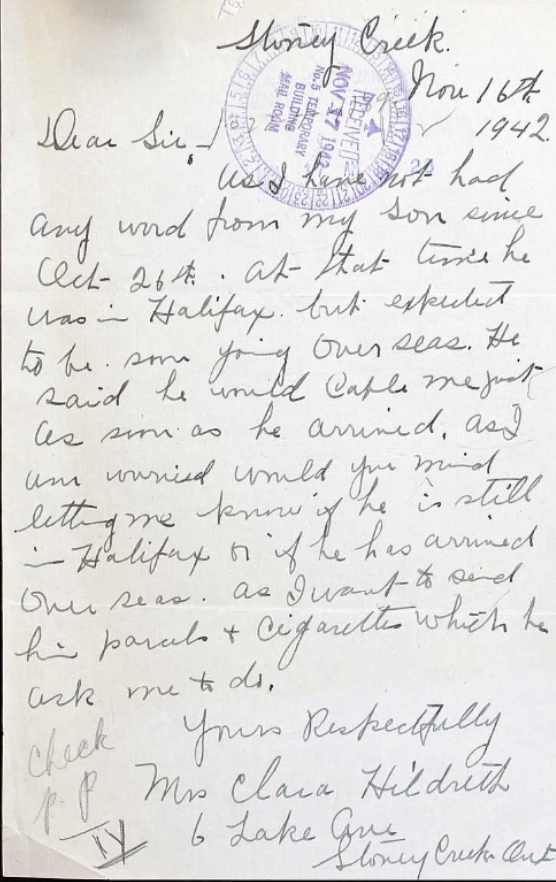 Stoney Creek.
Nov 16th
1942.
RECEIVED
NOV 17 1942
No. 5 TEMPORARY
BUILDING
MAIL ROOM
Dear Sir,
As I have not had
any word from my son since
Oct 26th. At that time he
was in Halifax. but expected
to be. soon going Over seas. He
said he would Cable me just
as soon as he arrived, as I
am worried would you mind
letting me know if he is still
in Halifax or if he has arrived
Over seas. as I want to send
him parcels + Cigarettes which he
ask me to do.
Yours Respectfully
Mrs Clara Hildreth
6 Lake Ave
Stoney Creek Ont
Check
P. P